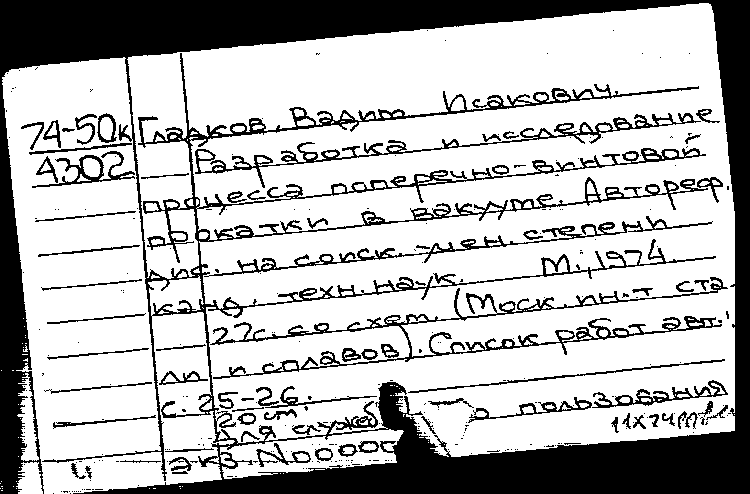 74-50к Гладков, Вадим Исакович.
4302 Разработка и исследование
процесса поперечно-винтовой
прокатки в вакууме. Автореф.
дис. на соиск. учен. степени
канд. техн. наук. М., 1974.
27с. со схем. (Моск. ин-т ста-
ли и сплавов). Список работ авт.:
с. 25-26.
20 см.
Для служеб пользования
экз. N00000